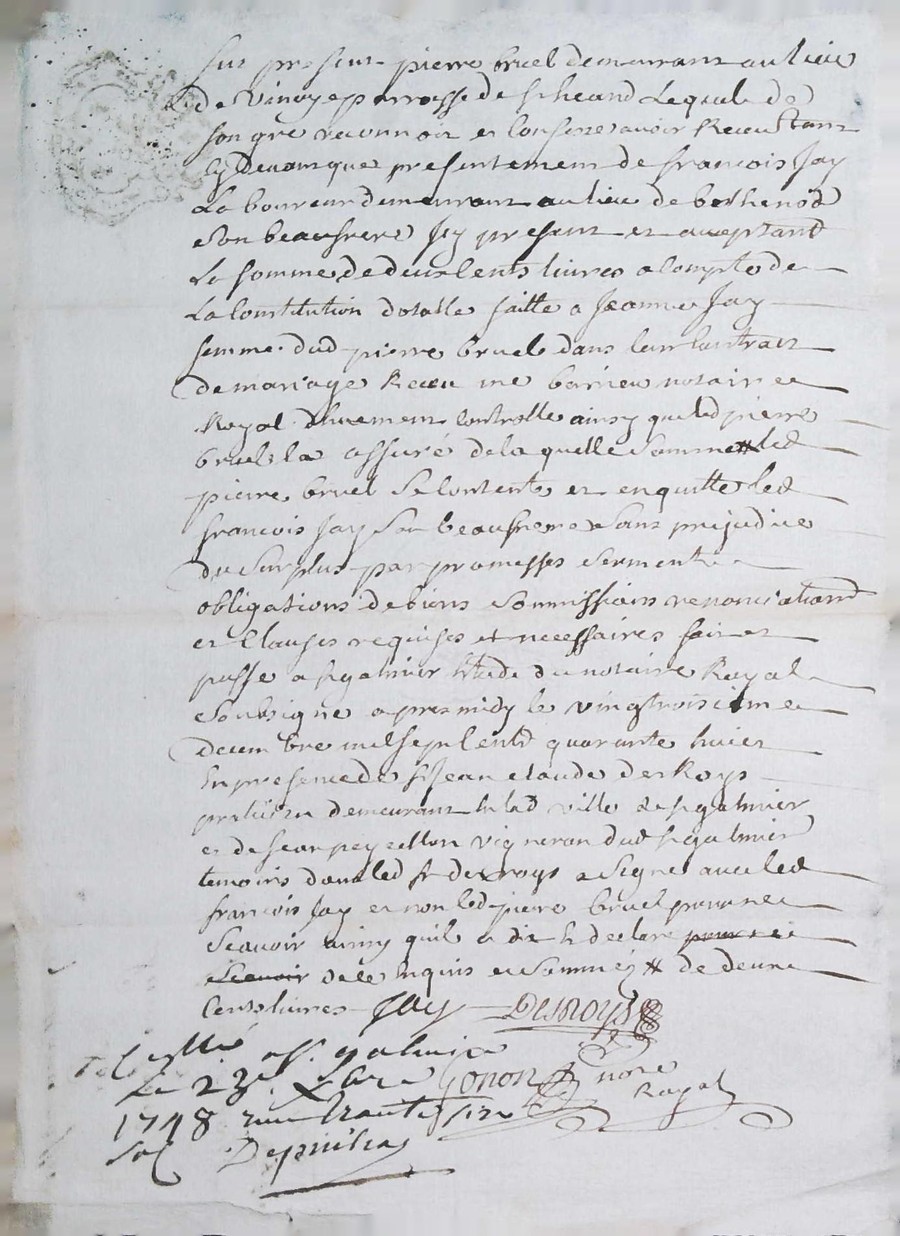 fut present pierre bruel demeurant au lieu
de Vinoye parroisse de st heand Lequele de
son gré reconnoit et Confesse avoir Receu tant
Cy devant que presentement de francois Jay
Laboureur demeurant au lieu de bothenod
son beaufrere Jcy present et acceptant
La somme de deux Cents livres a Compte de
La Constitution dotalle faitte a Jeanne Jay
femme dud pierre bruel dans leur Contract
de mariage Receu me notaire
Royal duement Controlle ainsy que led pierre
bruel la assuré de la quelle somme # led
pierre bruel se Contente et en quitte led
francois Jay son beaufrere sans prejudice
du surplus par promesses serment
obligations de biens sommissions renonciations
et Clauses requises et necessaires fait et
passé a st galmier Etude du notaire Royal
soubsigné apres midy le vingtroisieme
decembre mil sept Cents quarante huict
En presence de sr Jean Claude desRoys
praticien demeurant En lad ville de st galmier
et de Jean vigneron dud st galmier
temoins dont led sr desroys a signé avec led
francois Jay et non led pierre bruel pour ne
scavoir ainsy quil a dit et declaré pour ne
scavoir de ce Enquis et sommé # de deux
Cents livres Jay DESROYS
Cllé a st galmier
Le 23e Xbre Gonon nore
1748 Royal
sol